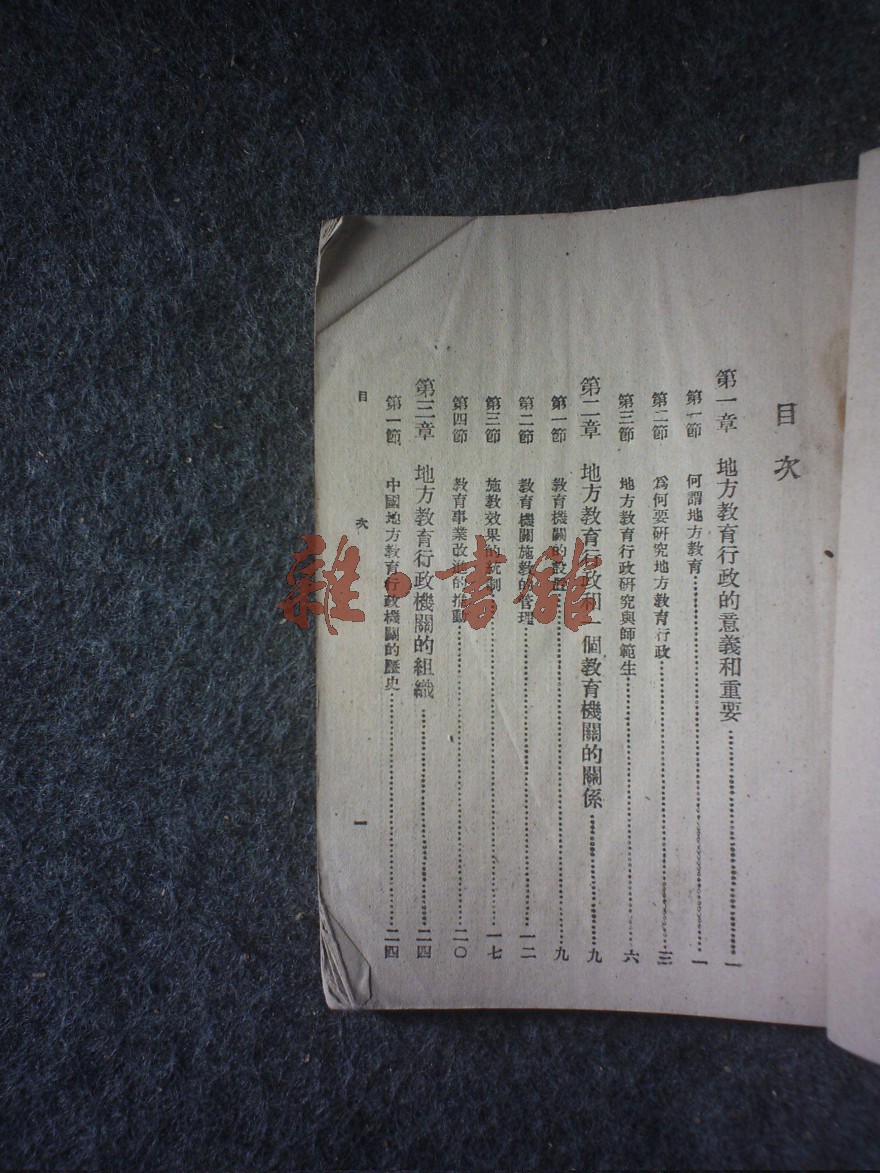 目次
第一章 地方教育行政的意義和重要……一
第一節 何謂地方教育……一
第二節 爲何要研究地方教育行政……三
第三節 地方教育行政研究與師範生……六
第二章 地方教育行政和一個教育機關的關係……九
第一節 教育機關的設置……九
第二節 教育機關施教的管理……一二
第三節 施教效果的統制……一七
第四節 教育事業改進的推動……二〇
第三章 地方教育行政機關的組織……二四
第一節 中國地方教育行政機關的歷史……二四
目次 一
雜·書館